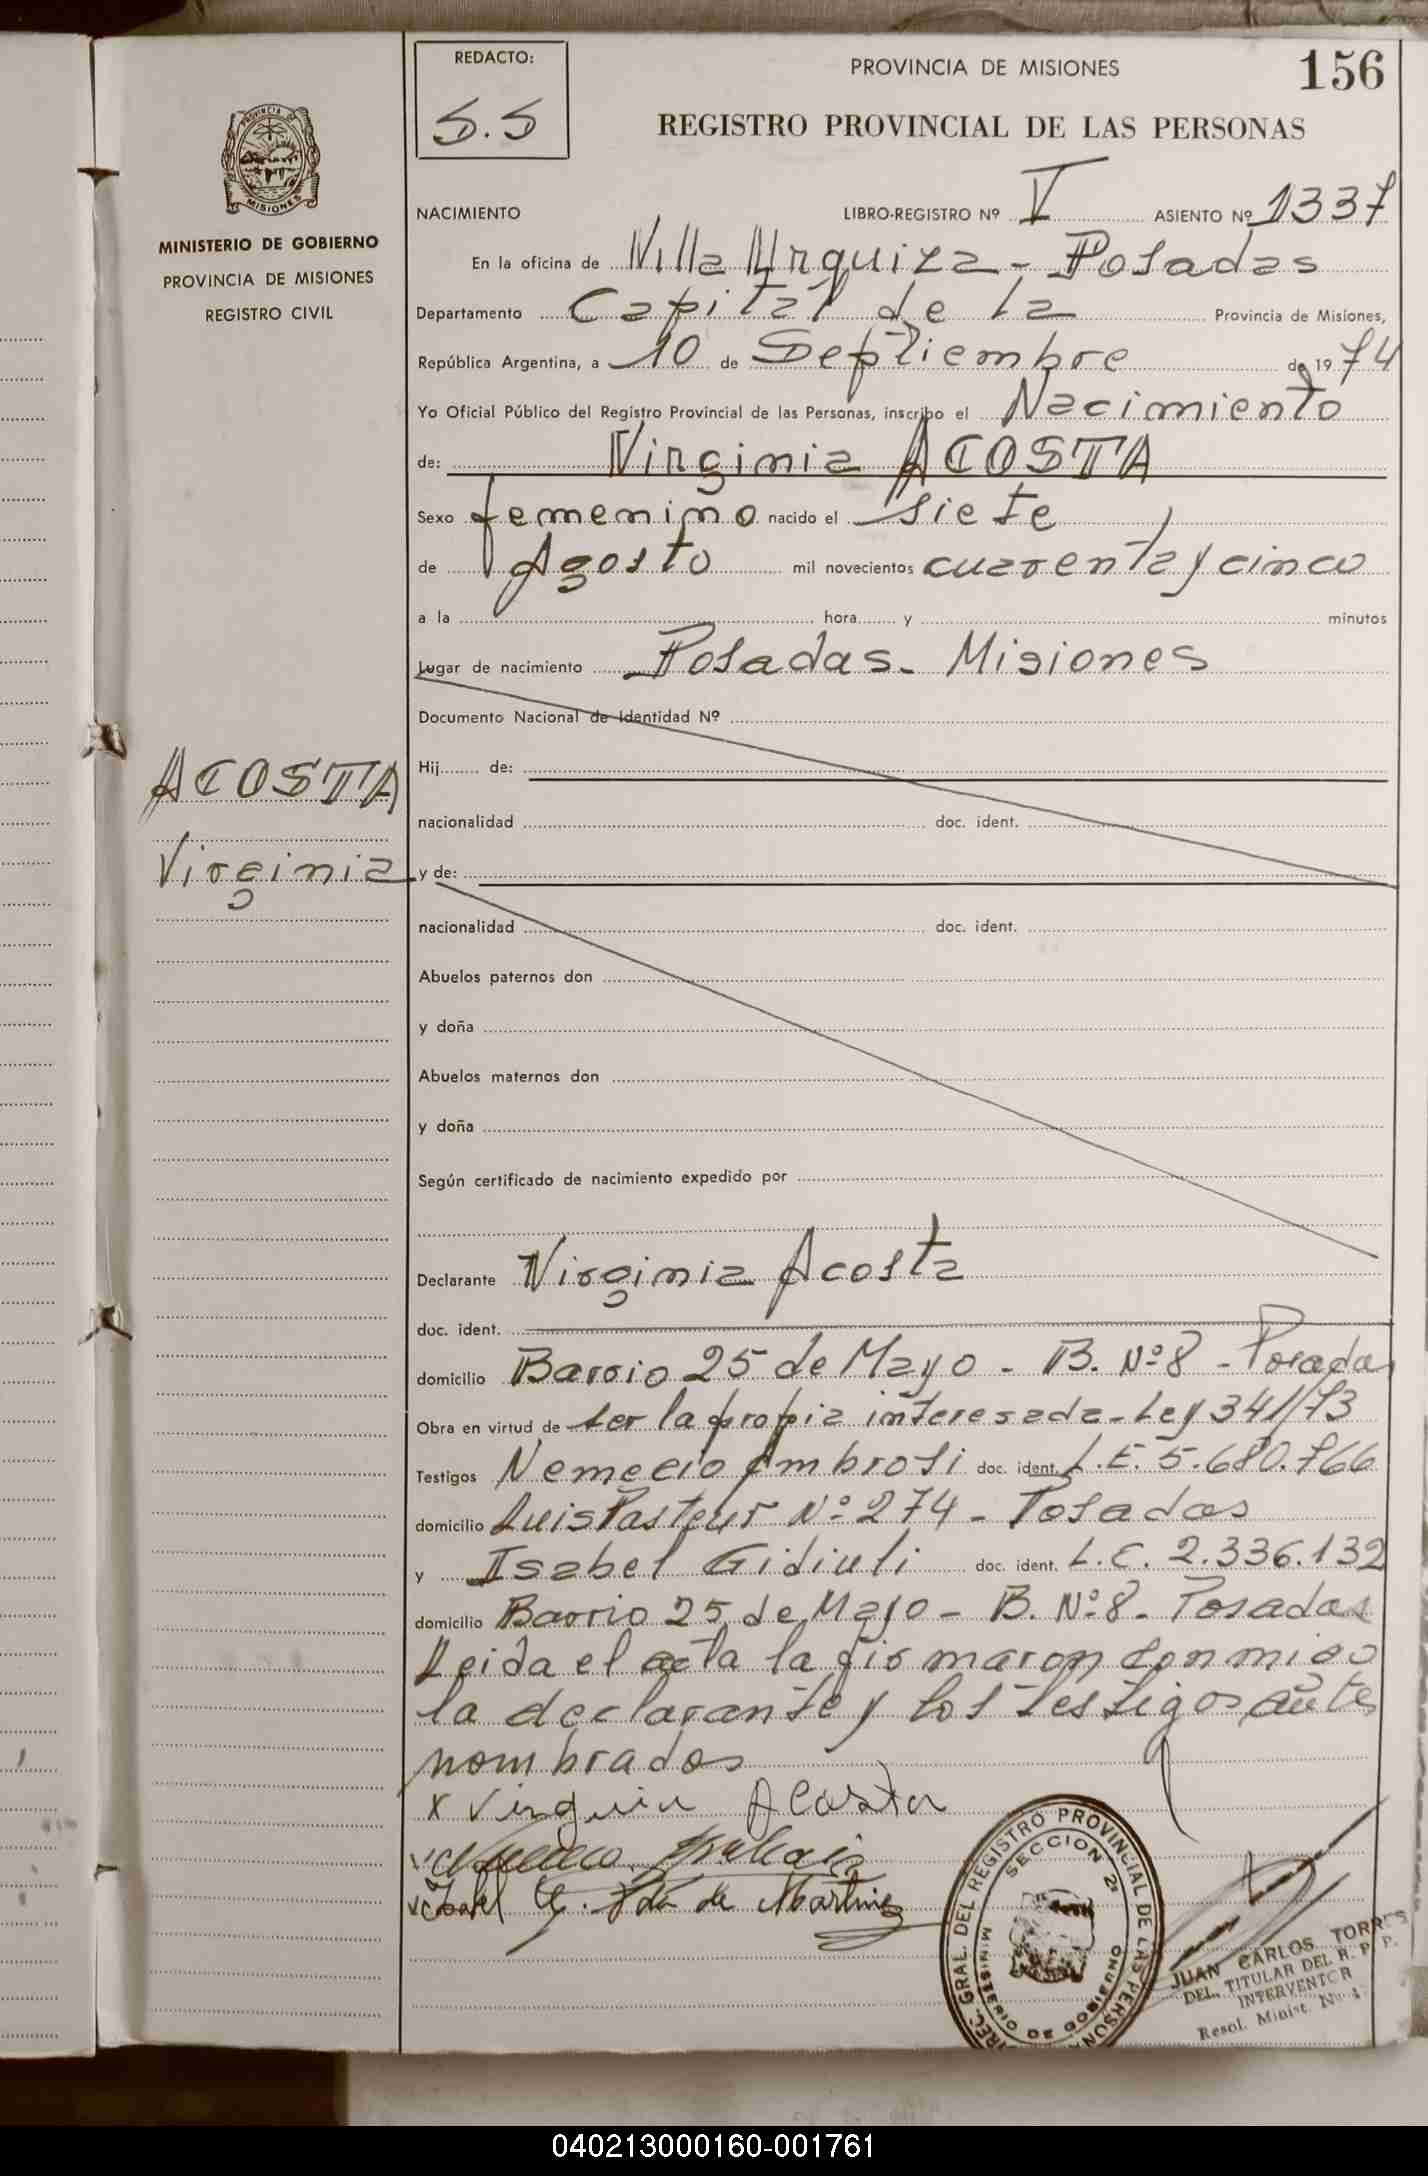 REDACTO:
S.S
PROVINCIA DE MISIONES
156
REGISTRO PROVINCIAL DE LAS PERSONAS
PROVINCIA DE
MISIONES
MINISTERIO DE GOBIERNO
PROVINCIA DE MISIONES
REGISTRO CIVIL
NACIMIENTO LIBRO-REGISTRO Nº V ASIENTO Nº 1337
En la oficina de Villa Urquiza - Posadas
Departamento Capital de la Provincia de Misiones,
República Argentina, a 10 de Septiembre de 1974
Yo Oficial Público del Registro Provincial de las Personas, inscribo el Nacimiento
de: Virginia ACOSTA
Sexo femenino nacido el siete
de Agosto mil novecientos cuarenta y cinco
a la hora y minutos
Lugar de nacimiento Posadas - Misiones
Documento Nacional de Identidad Nº
ACOSTA
Virginia
Hij de:
nacionalidad doc. ident.
y de:
nacionalidad doc. ident.
Abuelos paternos don
y doña
Abuelos maternos don
y doña
Según certificado de nacimiento expedido por
Declarante Virginia Acosta
doc. ident.
domicilio Barrio 25 de Mayo - B. Nº 8 - Posadas
Obra en virtud de ser la propia interesada - Ley 341/73
Testigos Nemecio Ambrosi doc. ident. L.E. 5.680.766
domicilio Luis Pasteur Nº 274 - Posadas
y Isabel Gidiuli doc. ident. L.C. 2.336.132
domicilio Barrio 25 de Mayo - B. Nº 8 - Posadas
Leida el acta la firmaron conmigo
la declarante y los testigos ante
nombrados
x Virginia Acosta
Isabel G. Vda de Martinez
DIREC. GRAL. DEL REGISTRO PROVINCIAL DE LAS PERSONAS
SECCION 2ª
MINISTERIO DE GOBIERNO
JUAN CARLOS TORRES
DEL. TITULAR DEL R. P. P.
INTERVENTOR
Resol. Minist. Nº
040213000160-001761